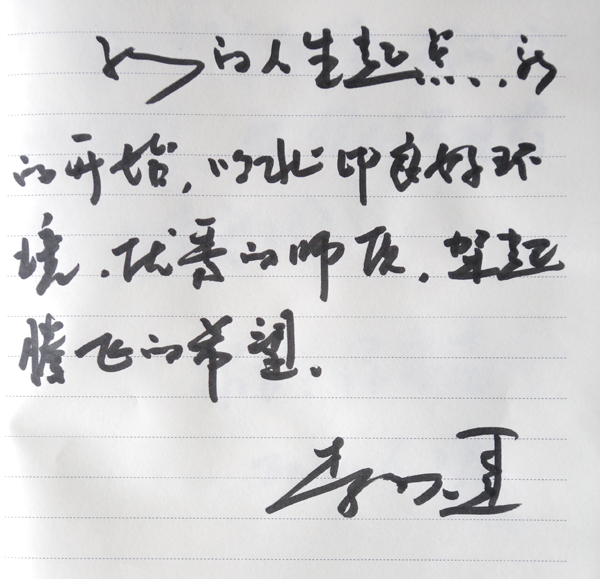 的人生起点、新
的开始,以北印良好环
境、优秀的师质,架起
腾飞的希望。
李